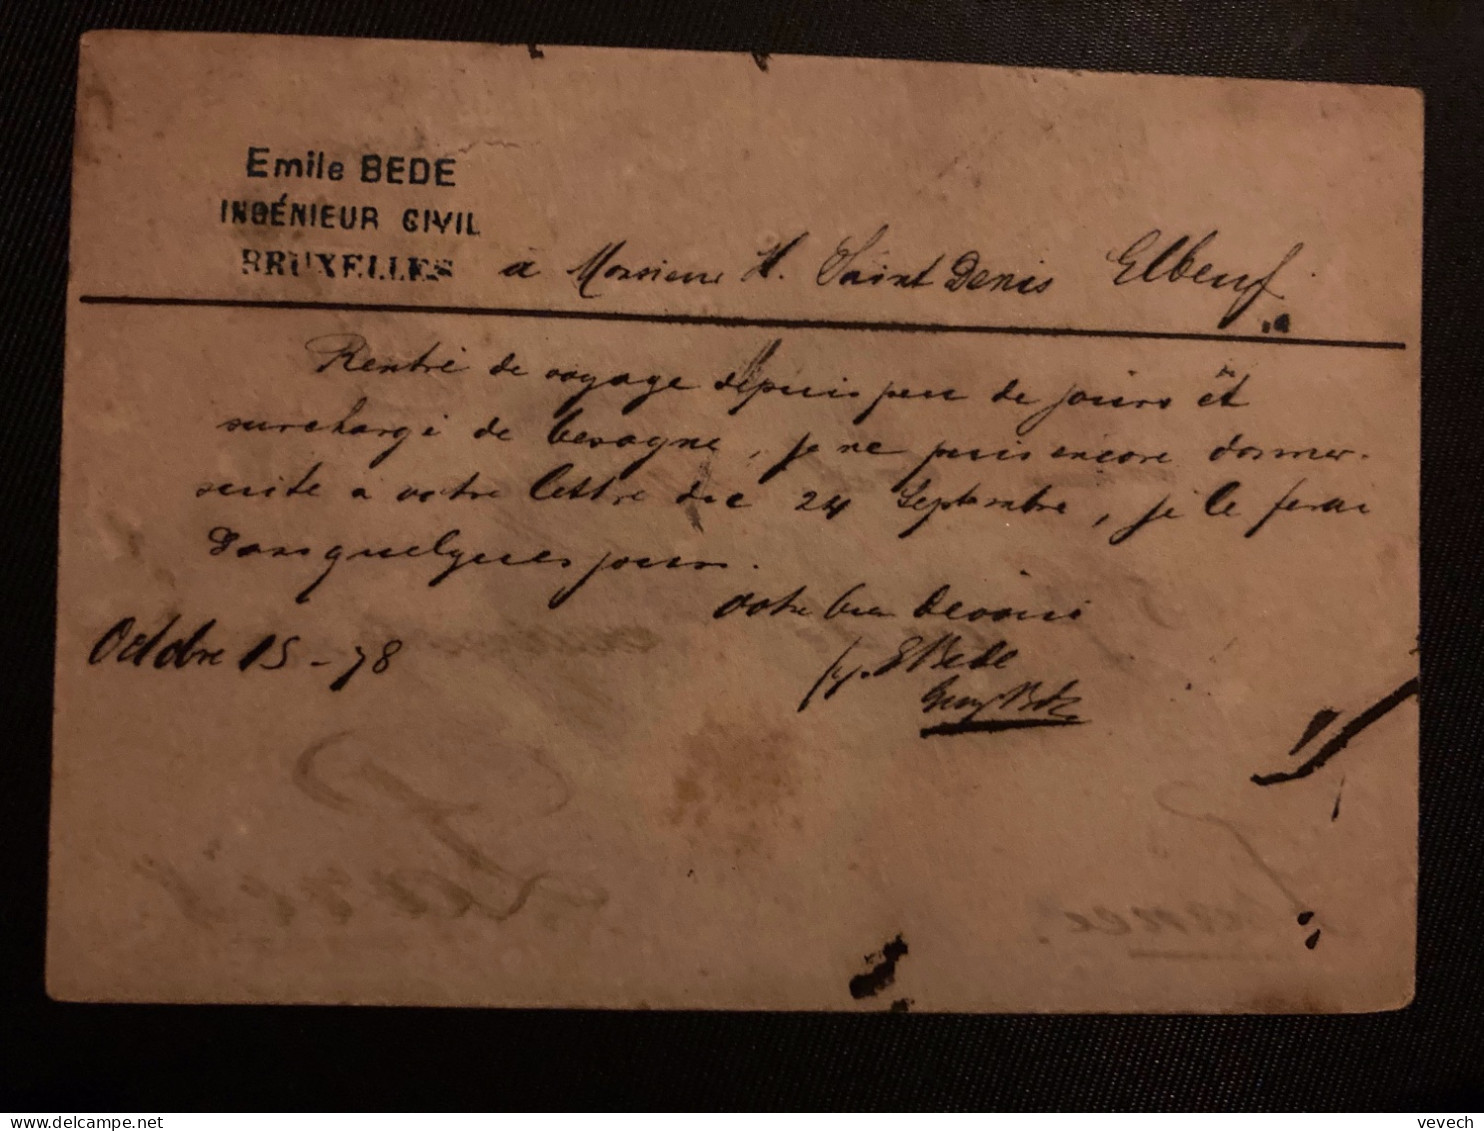 Emile BEDE
INGÉNIEUR CIVIL
BRUXELLES
à Monsieur H. Saint Denis Elbeuf
Rentré de voyage depuis peu de jours et
surchargé de besogne, je ne puis encore donner
suite à votre lettre du 24 Septembre, je le ferai
dans quelques jours.
Votre bien dévoué
Octobre 15 - 78
E Bede
vevech